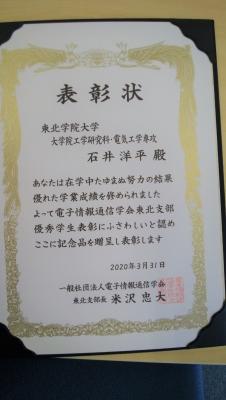 表彰状
東北学院大学
大学院工学研究科・電気工学専攻
石井洋平 殿
あなたは在学中たゆまぬ努力の結果
優れた学業成績を修められました
よって電子情報通信学会東北支部
優秀学生表彰にふさわしいと認め
ここに記念品を贈呈し表彰します
2020年3月31日
一般社団法人電子情報通信学会
東北支部長 米沢忠大